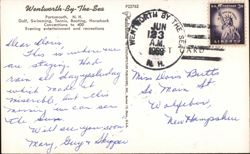 Wentworth-By-The-Sea
Portsmouth, N. H.
Golf, Swimming, Tennis, Boating, Horseback
Conventions to 400
Evening entertainment and recreations
Dear Doris,
This is where we
are staying. Had
rain all day yesterday
which made it
miserable, but this
morning we can see
the sun.
Will see you soon
Mary, Guy & Skipper
WENTWORTH BY THE SEA
JUN
23
A.M.
N. H.
Miss Doris Butts
So. Main St
Wolfeboro,
New Hampshire